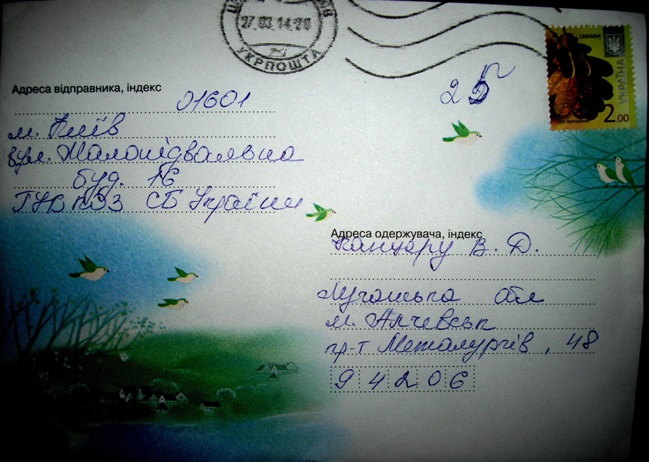 27.03.14 20
УКРПОШТА
UKRAINE
УКРАЇНА
2.00
25г
Адреса відправника, індекс
01601
м. Київ
вул. Малопідвальна
буд. 16
СБ України
Адреса одержувача, індекс
Канцеру В. Д.
Луганська обл
м. Алчевськ
пр-т Металургів, 48
94206